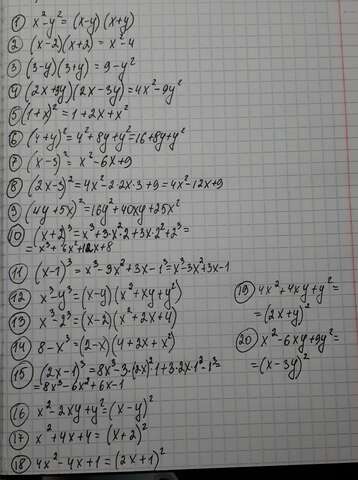 1 x²-y² = (x-y)(x+y)
2 (x-2)(x+2) = x²-4
3 (3-y)(3+y) = 9-y²
4 (2x+3y)(2x-3y)=4x²-9y²
5 (1+x)² = 1+2x+x²
6 (4+y)²=4²+8y+y²=16+8y+y²
7 (x-3)² = x²-6x+9
8 (2x-3)²=4x²-2·2x·3+9=4x²-12x+9
9 (4y+5x)²=16y²+40xy+25x²
10 (x+2)³=x³+3·x²·2+3x·2²+2³=
=x³+6x²+12x+8
11 (x-1)³=x³-3x²+3x-1³=x³-3x²+3x-1
12 x³-y³=(x-y)(x²+xy+y²)
13 x³-2³=(x-2)(x²+2x+4)
14 8-x³=(2-x)(4+2x+x²)
15 (2x-1)³=8x³-3·(2x)²·1+3·2x·1²-1³=
=8x³-6x²+6x-1
16 x²-2xy+y²=(x-y)²
17 x²+4x+4=(x+2)²
18 4x²-4x+1=(2x+1)²
19 4x²+4xy+y²=
=(2x+y)²
20 x²-6xy+9y²=
=(x-3y)²